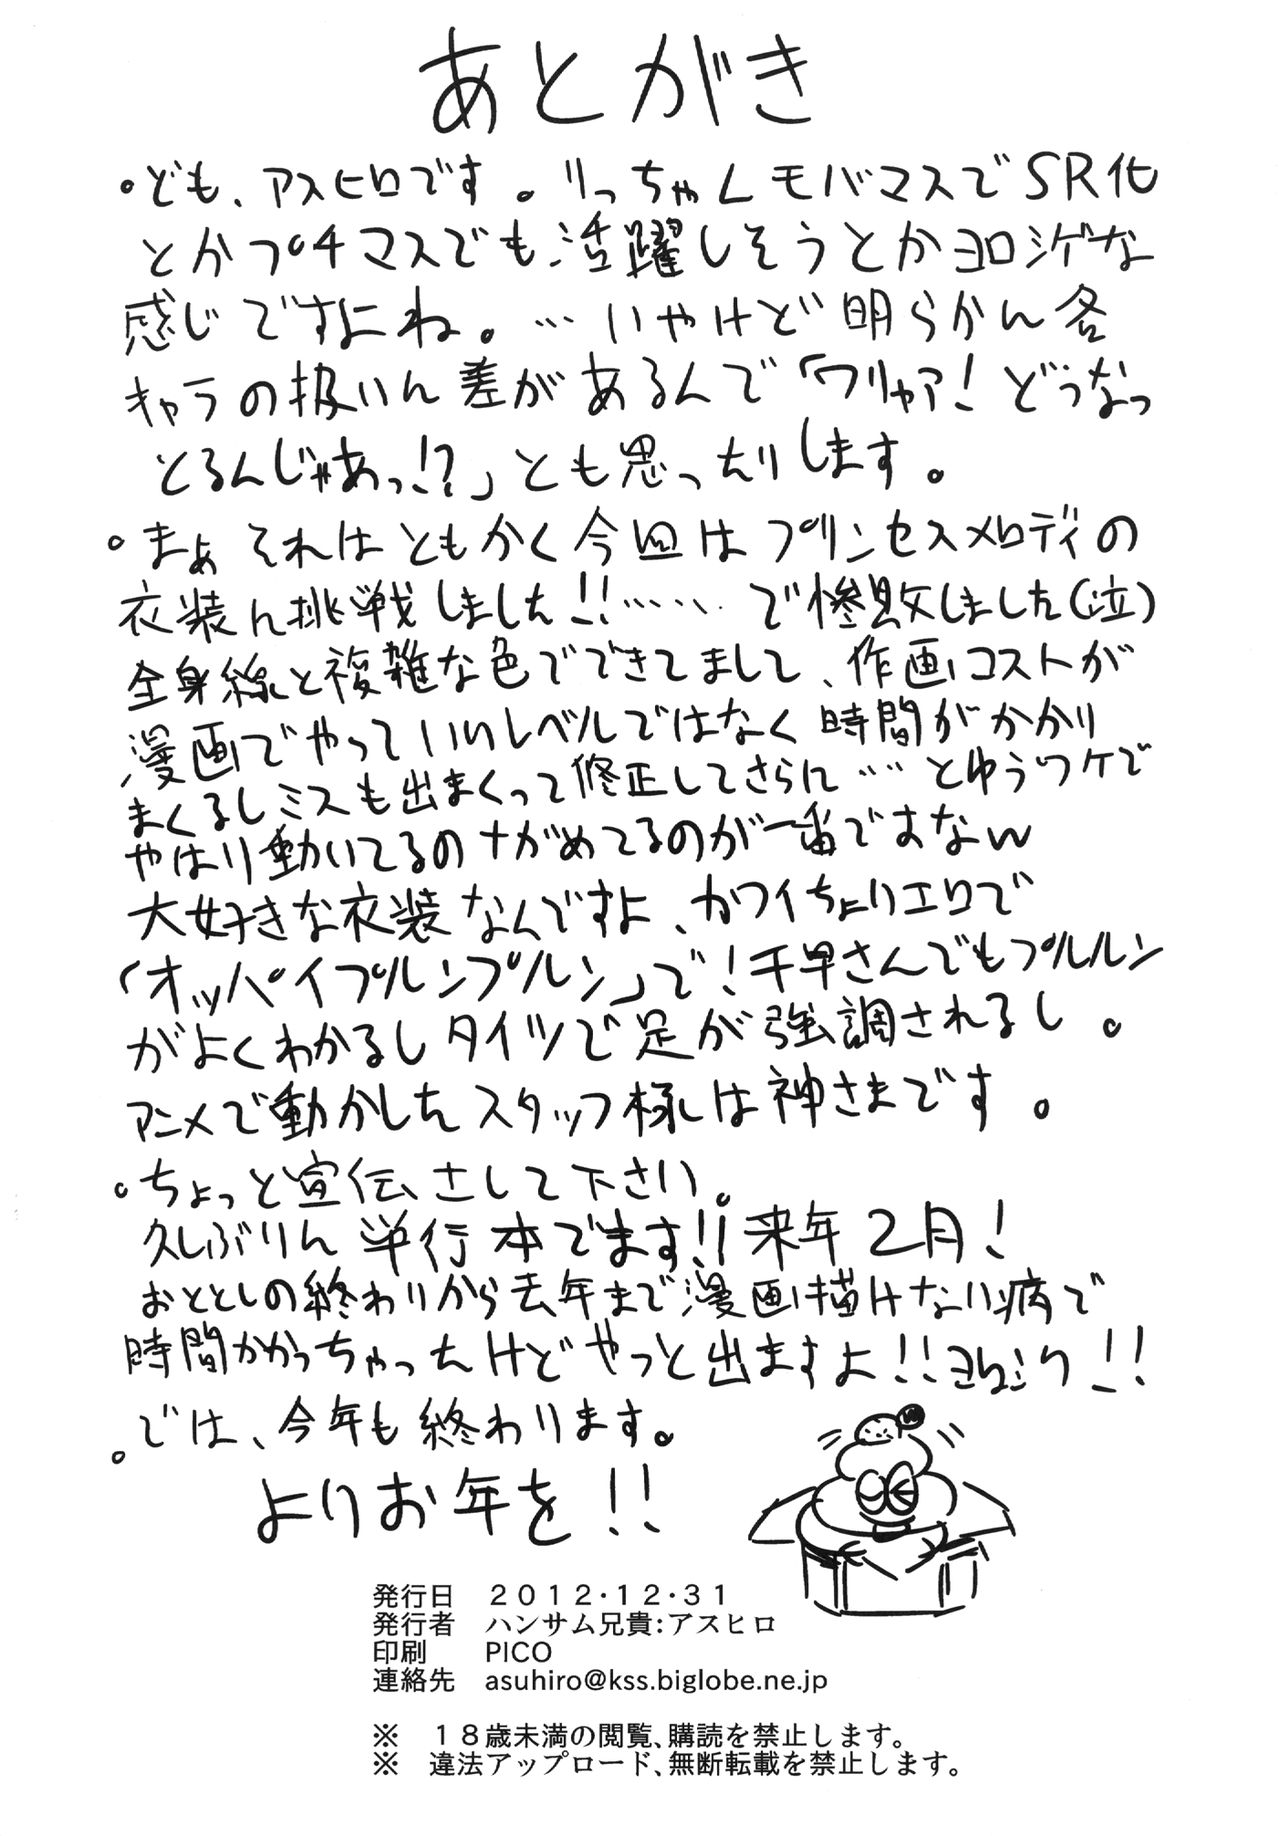 あとがき
・ども、アスヒロです。りっちゃんモバマスでSR化
とかプチマスでも活躍しそうとかヨロシゲな
感じですよね。…いやけど明らかに各
キャラの扱いに差があるんで「ワリャア！どうなっ
とるんじゃあっ!?」とも思ったりします。
・まぁそれはともかく今回はプリンセスメロディの
衣装に挑戦しました!!……で惨敗しました(泣)
全身線と複雑な色でできてまして、作画コストが
漫画でやっていいレベルではなく時間がかかり
まくるしミスも出まくって修正してさらに…とゆうワケで
やはり動いてるのながめてるのが一番ですなw
大好きな衣装なんですよ、カワイちょりエロで
「オッパイプルンプルン」で！千早さんでもプルルン
がよくわかるしタイツで足が強調されるし。
アニメで動かしたスタッフ様は神さまです。
・ちょっと宣伝さして下さい。
久しぶりに単行本でます!!来年2月！
おととしの終わりから去年まで漫画描けない病で
時間かかっちゃったけどやっと出ますよ!!ヨロシク!!
・では、今年も終わります。
よりお年を!!
発行日　２０１２・１２・３１
発行者　ハンサム兄貴：アスヒロ
印刷　PICO
連絡先　asuhiro@kss.biglobe.ne.jp
※　１８歳未満の閲覧、購読を禁止します。
※　違法アップロード、無断転載を禁止します。